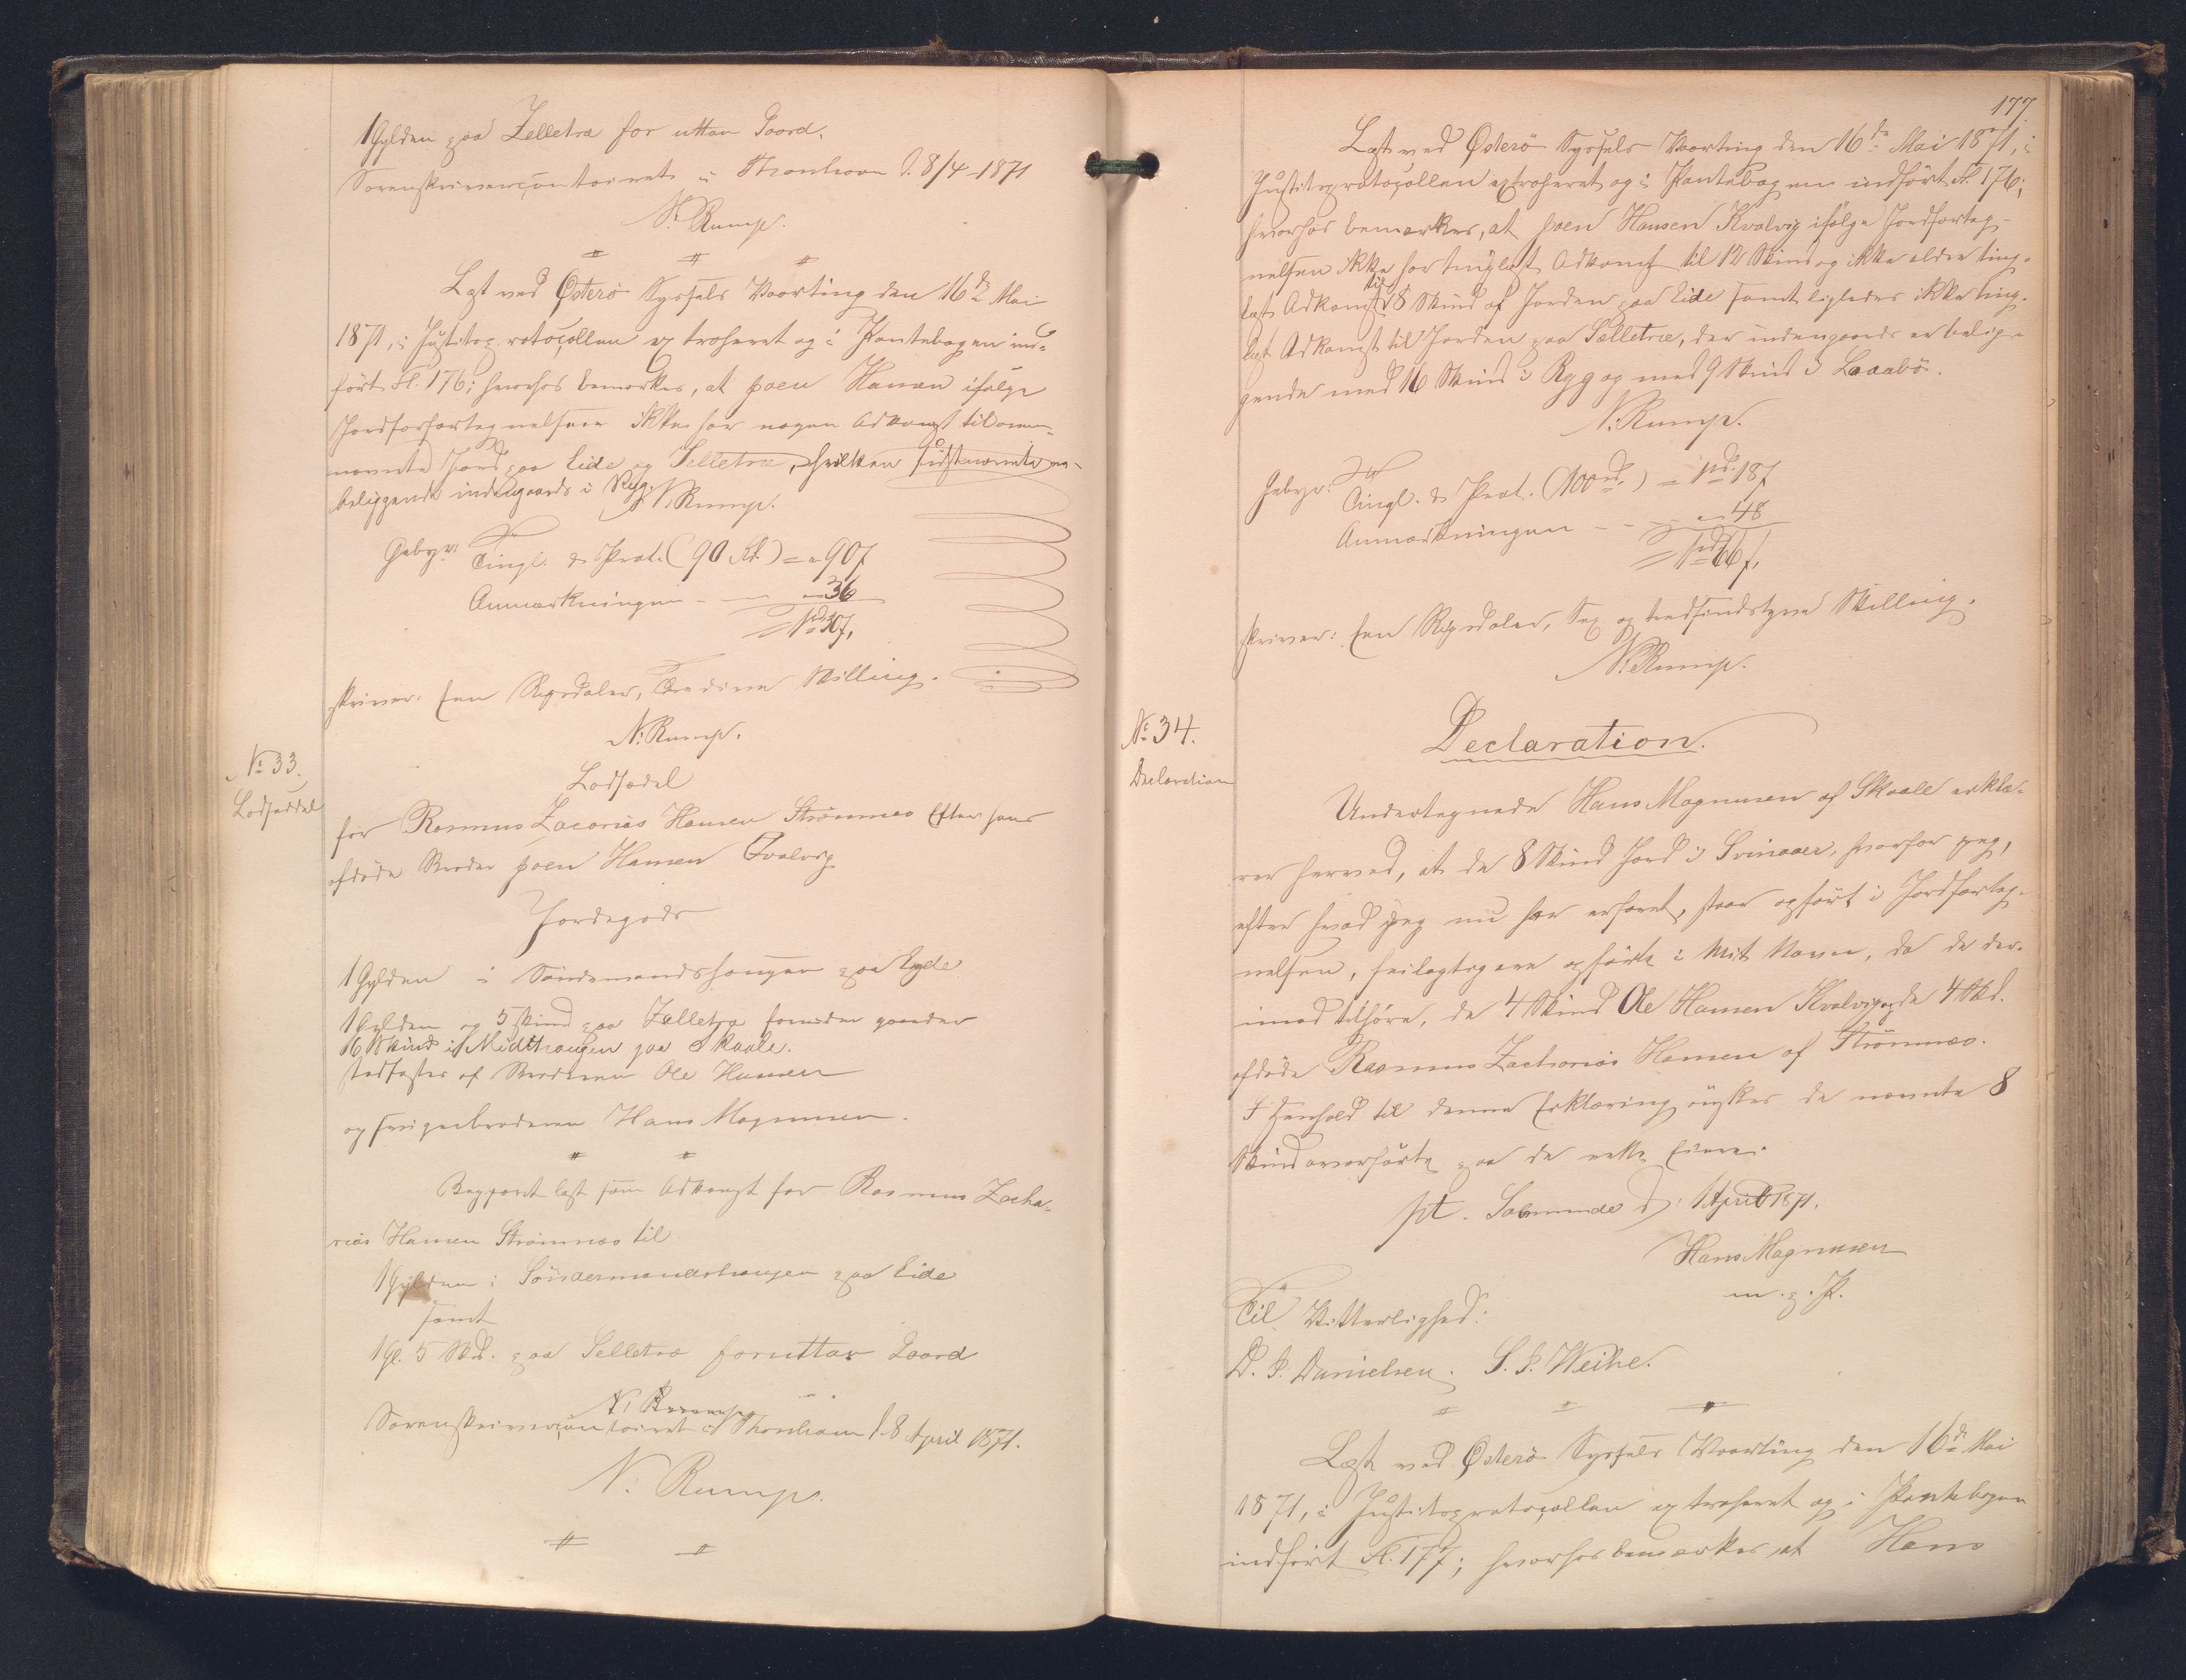 1 Gylden paa Selletræ for uttan Gaard.
Sorenskrivercontoiret i Thorshavn d. 8/4-1871
N: Rump.
Læst ved Østerø Syssels Vaarting den 16de Mai
1871, i Justitsprotocollen extraheret og i Pantebogen ind-
ført Fl. 176; hvorhos bemærkes, at Poen Hansen ifølge
Jordfortegnelsen ikke har nogen Adkomst til oven-
nævnte Jord paa Eide og Selletræ, hvilken sidstnævnte er
beliggende indengaards i Ryg. N. Rump.
Gebyr: Tingl. & Prot. (90 Rd.) = " 90 ß
Anmærkningen - - " 36
= 1 rd 30 ß,
skriver: Een Rigsdaler, Tredive Skilling.
N: Rump.
No 33.
Lodseddel
Lodsedel
for Rasmus Zacarias Hansen Strømnæs Efter hans
afdøde Broder Poen Hansen Kvalvig
Jordegods
1 Gylden i Søndemandshaugen paa Eyde
1 Gylden og 5 Skind paa Zelletræ foruden gaarder
16 Skind i Midthaugen paa Skaale.
stadfæstes af Brødrene Ole Hansen
og Svigerbroderen Hans Magnusen.
Begjært læst som Adkomst for Rasmus Zacha-
rias Hansen Strømnæs til
1 Gylden i Søndermandshaugen paa Eide
samt
1 Gl. 5 Skd. paa Selletræ foruttar Gaard
Sorenskrivercontoiret i Thorshavn d. 8 April 1871.
N: Rump.
177.
Læst ved Østerø Syssels Vaarting den 16de Mai 1871, i
Justitsprotocollen extraheret og i Pantebogen indført Fl. 176;
hvorhos bemærkes, at Poen Hansen Kvalvig ifølge Jordforteg-
nelsen ikke har tinglæst Adkomst til 12 Skind og ikke eldre ting-
læst Adkomst til 8 Skind af Jorden paa Eide samt ligeledes ikke ting-
læst Adkomst til Jorden paa Selletræ, der indengaards er belig-
gende med 16 Skind i Ryg og med 9 Skind i Laaabø.
N: Rump.
Gebyr: Tingl. & Prot. (100 rd.) = 1 rd. 18 ß
Anmærkningen - - - " 48
= 1 rd 66 ß,
skriver: Een Rigsdaler, Sex og tredsindstyve Skilling.
N: Rump.
No 34.
Declaration
Declaration.
Undertegnede Hans Magnusen af Skaale erklæ-
rer herved, at de 8 Skind Jord i Svinaaer, hvorfor jeg,
efter hvad jeg nu har erfaret, staar opført i Jordforteg-
nelsen, feilagtigen er opført i mit Navn, da de der-
imod tilhøre, de 4 Skind Ole Hansen Kvalvig og de 4 Skd.
afdøde Rasmus Zacharias Hansen af Strømnæs.
I Henhold til denne Erklæring ønskes de nævnte 8
Skind overførte paa de rette Eiere.
pt. Solmunde d: 1 April 1871.
Hans Magnusen
m. p. P.
Til Vitterlighed:
D. J. Danielsen. S. P. Weihe.
Læst ved Østerø Syssels Vaarting den 16de Mai
1871, i Justitsprotocollen extraheret og i Pantebogen
indført Fl. 177; hvorhos bemærkes, at Hans